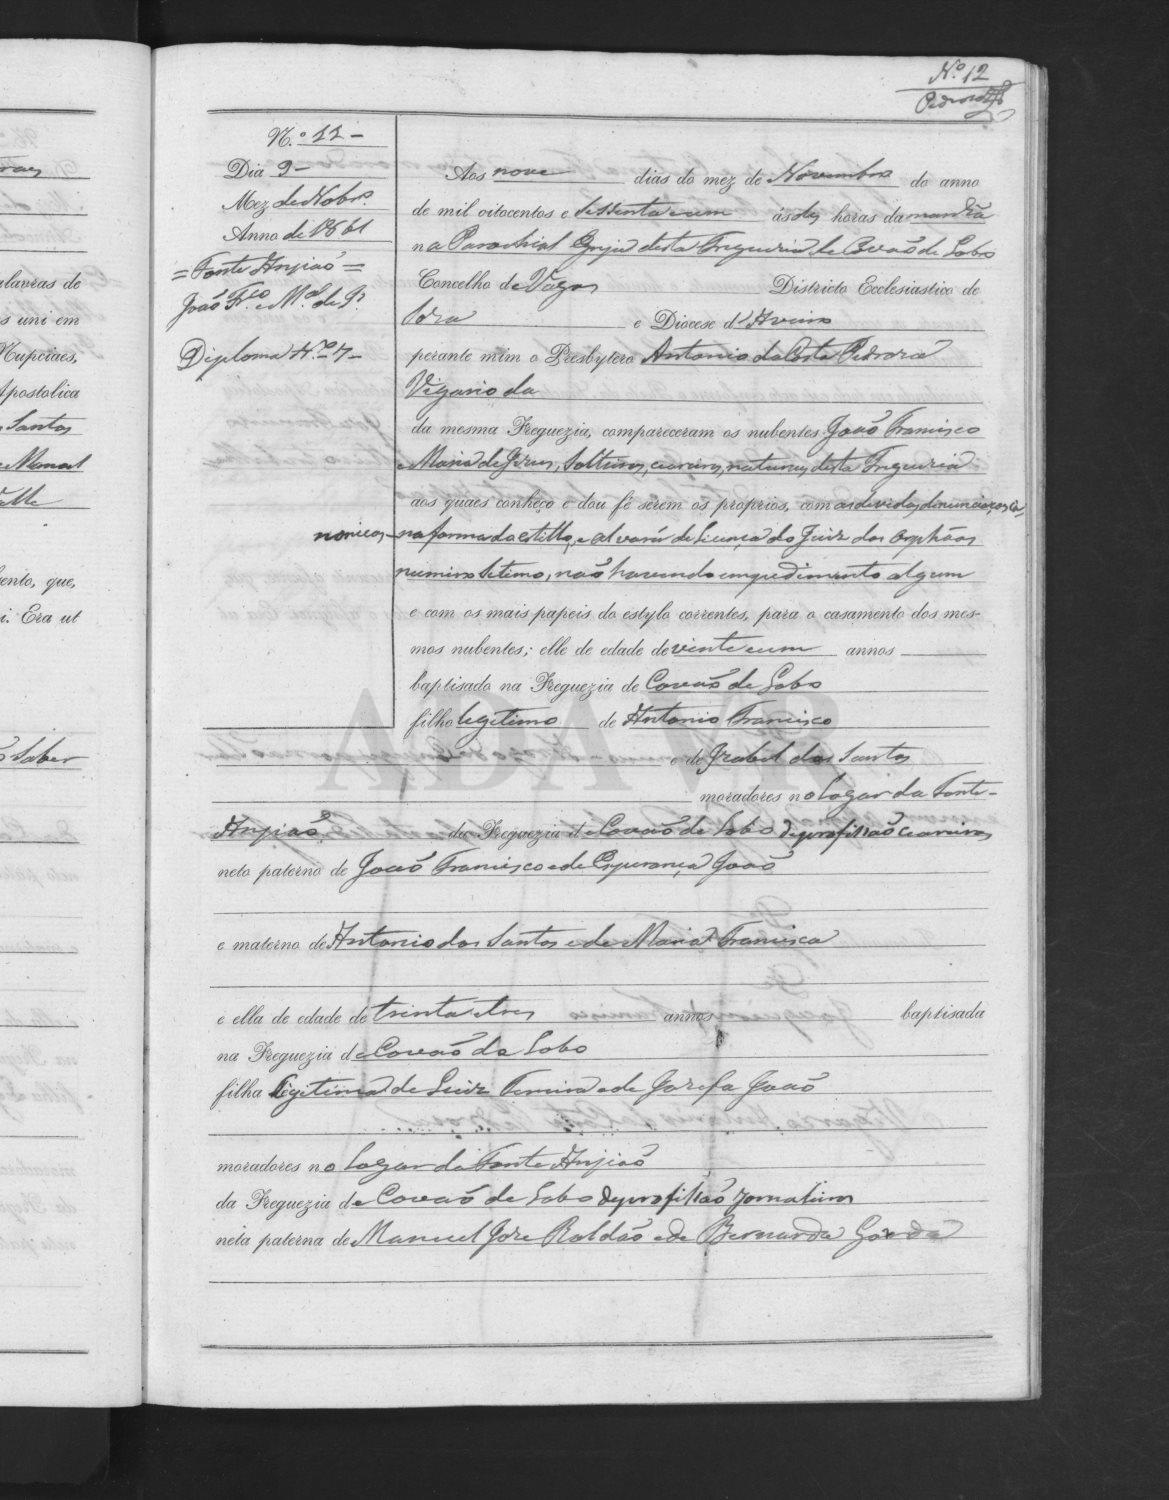 N.º 12
Pedrosa
N.º 11 –
Dia 9 –
Mez de Nobr.º
Anno de 1861
= Fonte Anjião =
João Fr.co e M.a de J.
Diploma N.º 7 –
Aos nove dias do mez de Novembro do anno
de mil oitocentos e sessenta e um ás dez horas da manhã
na Parochial Egreja desta Freguezia de Covão de Lobo
Concelho de Vagos Districto Ecclesiastico de
e Diocese d'Aveiro
perante mim o Presbytero Antonio da Costa Pedrosa
Vigario da
da mesma Freguezia, compareceram os nubentes João Francisco
e Maria de Jezus, Solteiros, naturaes desta Freguezia
aos quaes conheço e dou fé serem os proprios, com as devidas denunciações ca-
nonicas na forma do estillo, e alvará de licença do Juiz dos Orphãos
numero setimo, não havendo impedimento algum
e com os mais papeis do estylo correntes, para o casamento dos mes-
mos nubentes; elle de edade de vinte e um annos
baptisado na Freguezia de Covão de Lobo
filho legitimo de Antonio Francisco
e de Izabel dos Santos
moradores no Logar da Fonte-
Anjião da Freguezia de Covão de Lobo de profissão
neto paterno de João Francisco e de Esperança João
e materno de Antonio dos Santos e de Maria Francisca
e ella de edade de trinta e tres annos baptisada
na Freguezia de Covão do Lobo
filha legitima de Luiz Ferreira e de Jozefa João
moradores no Logar da Fonte Anjião
da Freguezia de Covão de Lobo de profissão Jornaleiros
neta paterna de Manuel Joze Roldão e de Bernarda
ADAVR
Nupciaes,
Apostolica
Santos
e Manoel
i. Era ut
Saber